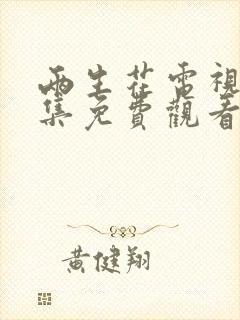 兩生花電視
集免費觀看
黃健翔